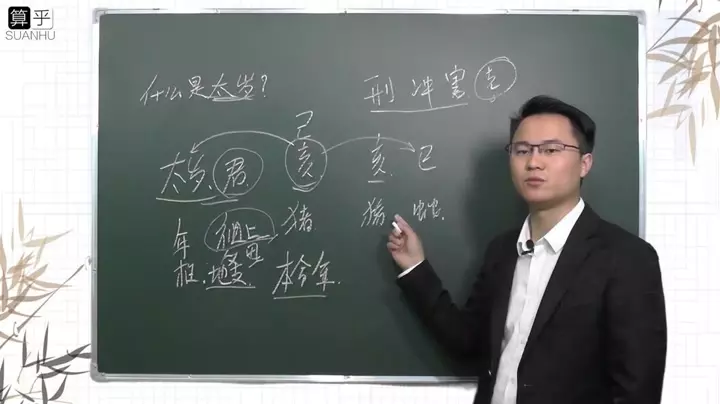 算乎
SUANHU
什么是太岁?
刑冲害克
己
太岁君 亥 亥 巳
年柱 猪 猪 蛇
地支 本命年